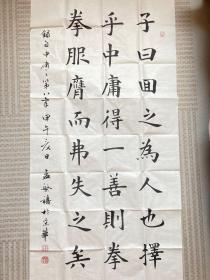 子曰回之為人也擇
乎中庸得一善則拳
拳服膺而弗失之矣
中庸之第八章 甲午夏日 於京華